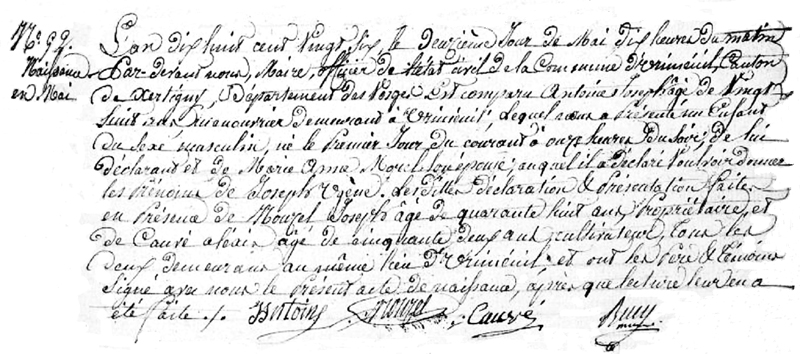 N.º 92.
Naissance
en Mai
L'an dix huit cent vingt six, le deuxième Jour de Mai dix heures du matin
Par-devant nous, Maire, officier de l'état civil de la Commune d'Uriménil, Canton
de Xertigny, Département des Vosges Est comparu Antoine Joseph âgé de vingt
huit ans demeurant à Uriménil, lequel nous a présenté un Enfant
du sexe masculin, né le Premier Jour du courant à onze heures du soir, de lui
déclarant et de Marie Anne son épouse, auquel il a déclaré vouloir donner
les Prénoms de Joseph Les dittes déclaration & présentation faites
en Présence de Nourel Joseph âgé de quarante huit ans Propriétaire, et
de Cauvé alexis âgé de cinquante deux ans cultivateur, tous les
deux demeurans au même lieu d'Uriménil; et ont les Père & témoins
signé avec nous le Présent acte de naissance, après que lecture leur en a
été faite ./. Nourel Cauvé